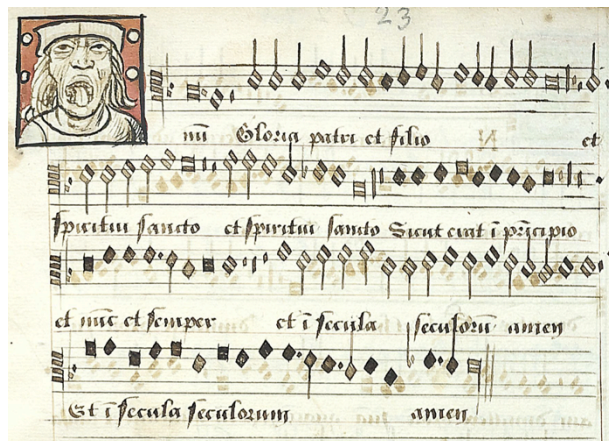 23
nū Gloria patri et filio et
spiritui sancto et spiritui sancto Sicut erat ī prīcipio
et nūc et semper et ī secula seculorū amen
Et ī secula seculorum amen